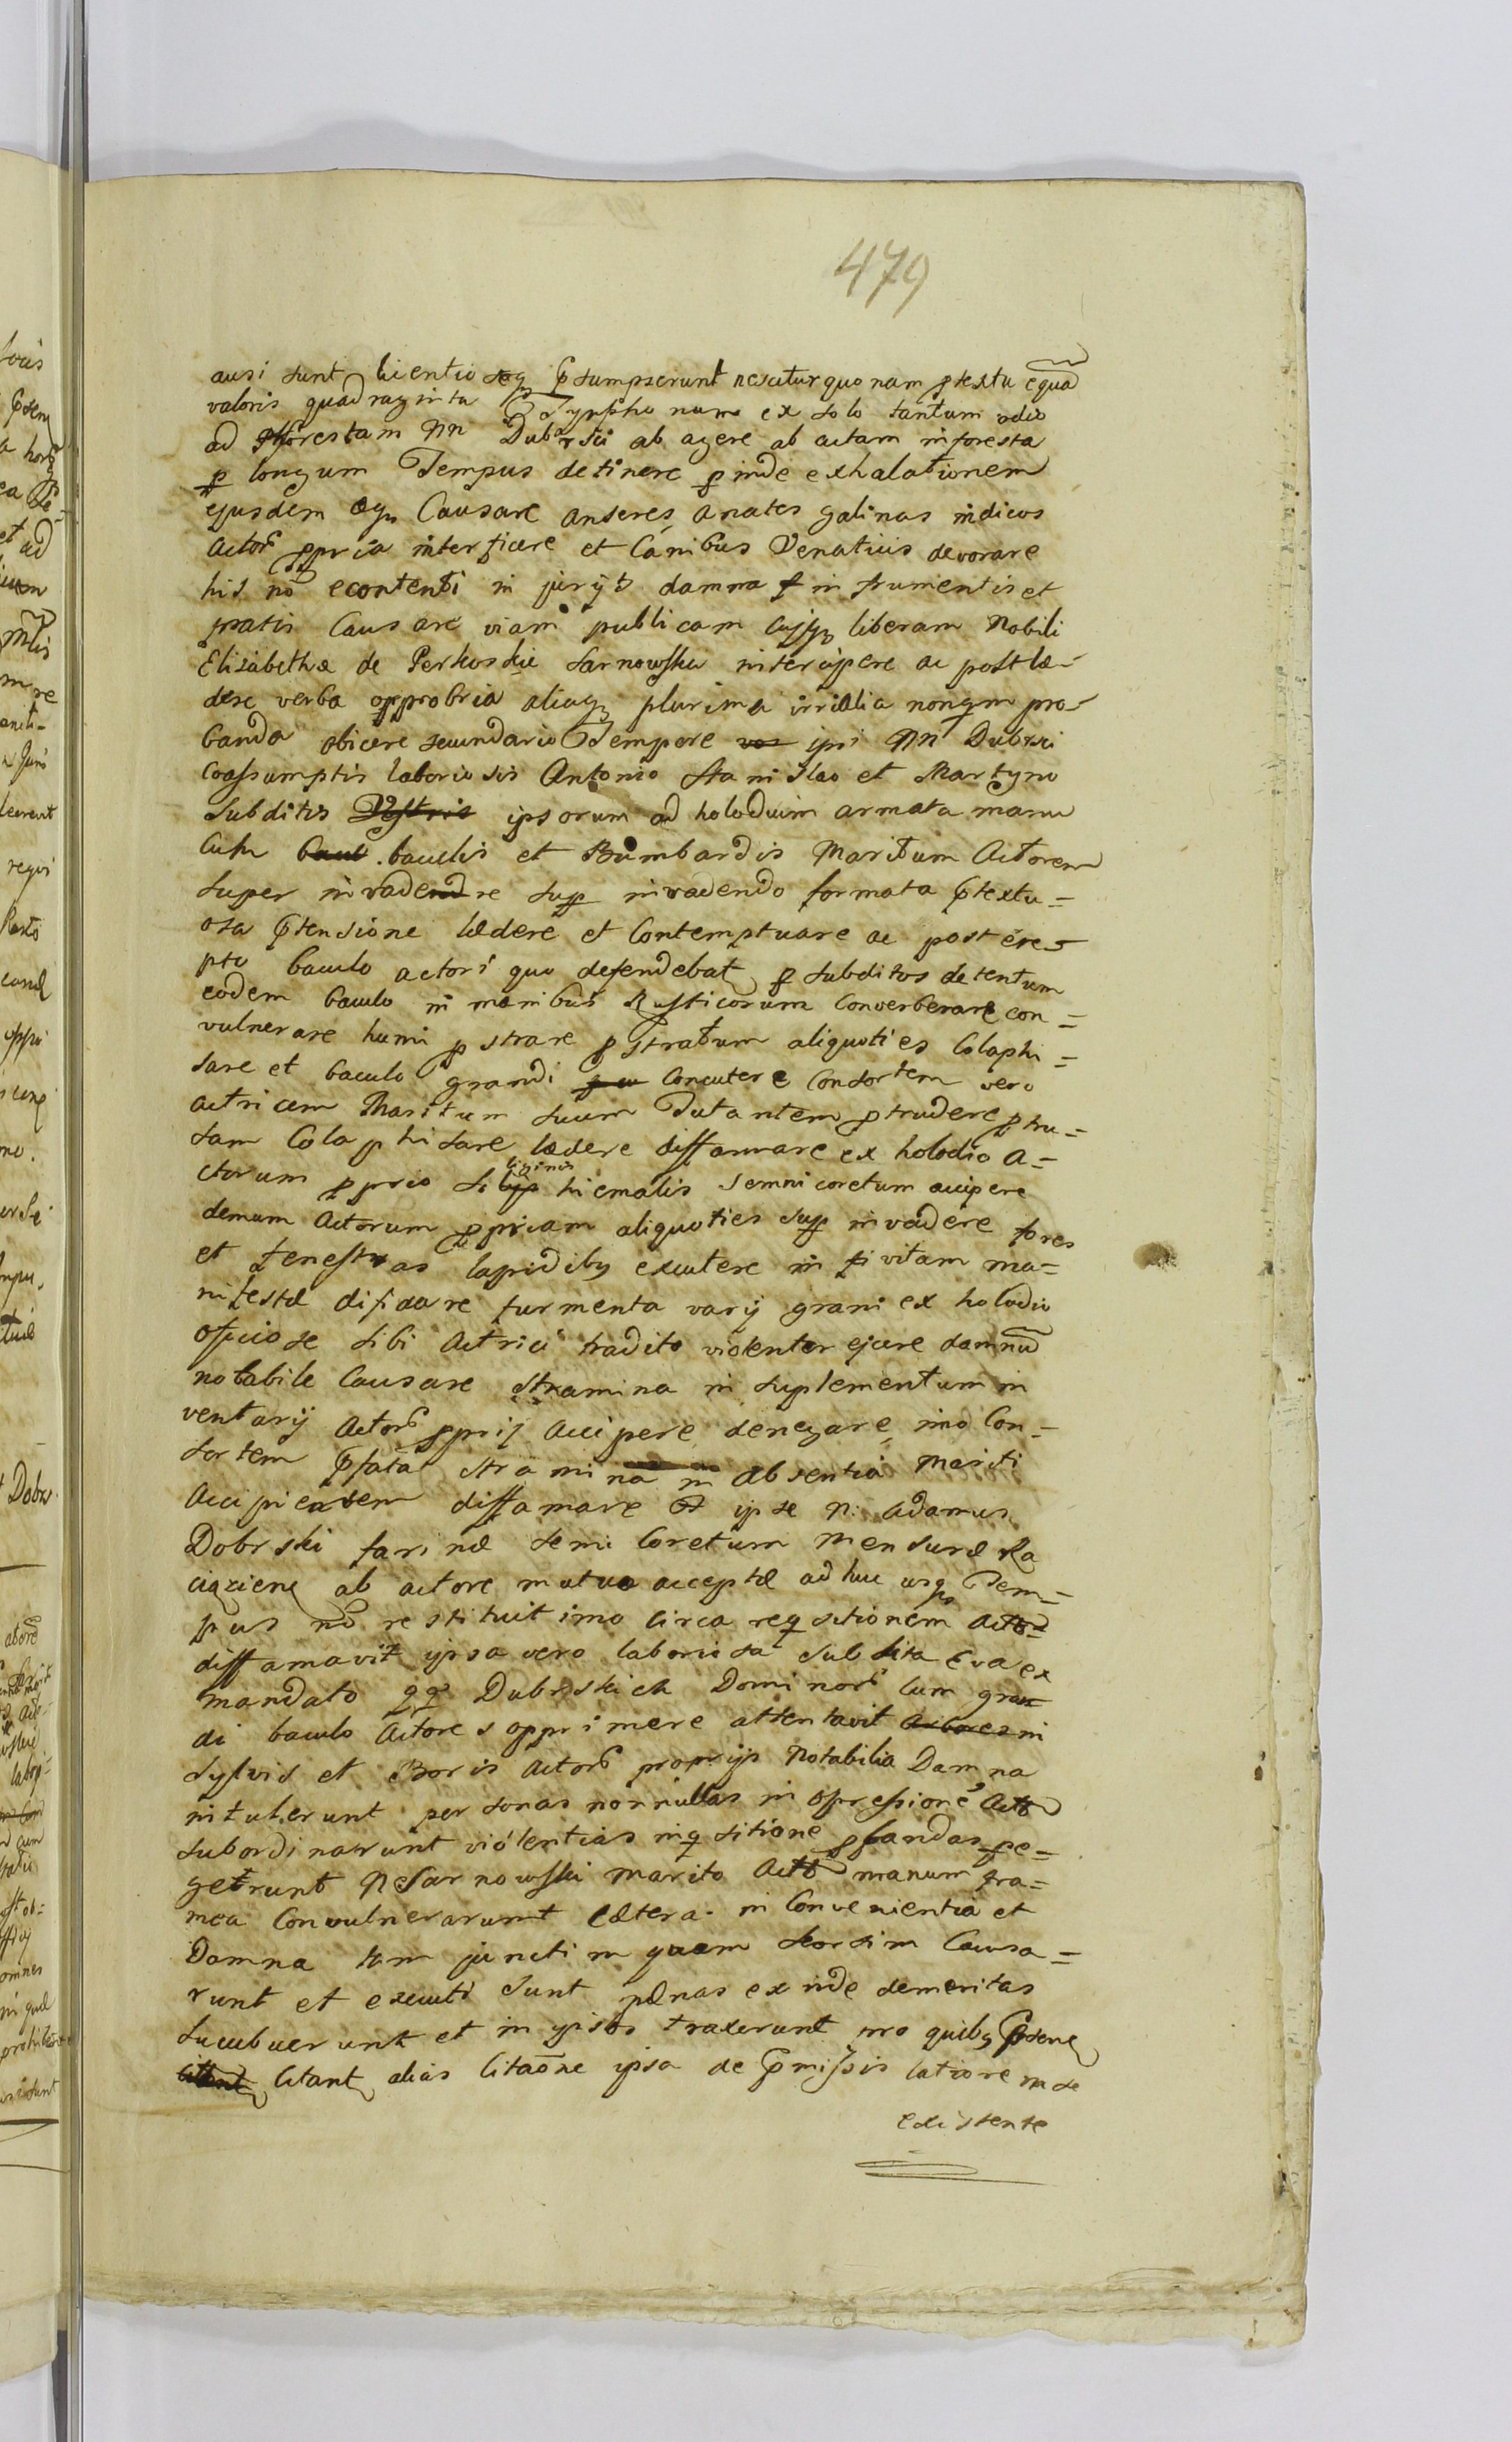 479
ausi sunt licentioseq p̄sumpserunt nescitur quo nam p̄textu equã
valoris quadraginta Tynpho num ex solo tantum odio
ad forestam NN Dobrscii ab agere ab actam in foresta
p longum Tempus detinere p inde exhalationem
ejusdem eq Causare anseres anates galinas indicos
actor ppria interficere et Canibus Venaticis devorare
his nō econtenti in jurijs damna in frumentis et
pratis Causare viam publicam cuiq liberam Nobili
Elisabethæ de Perkoskie Sarnowska intercipere ac post læ-
dere verba opprobria aliaq plurima irrialia nonqm pro-
banda obicere secundario Tempore ipsi NN Dubrsci
Coassumptis laboriosis Antonio Stanislao et Martyno
Subditis Vestris ipsorum ad holodium armata manu
Cum bacul baculis et Bumbardis Maritum Actorem
super invadendre sup invadendo formata p̄textu=
osa p̄tensione lædere et Contemptuare ac post ere=
pto baculo actori quo defendebat p subditos detentum
eodem baculo in manibus Rusticorum Converberare con=
vulnerare humi p strare p stratum aliquoties Colaphi=
sare et baculo grandi concutere Consortem vero
actricem Maritum suum Tutantem p trudere p tru=
sam Colaphisare lædere diffamare ex holodio A=
ctorum pprio siliginis hiemalis Semnicoretum accipere
demum Actorum ppriam aliquoties sup invadere fores
et fenestras lapidibq excutere in vitam ma=
nifestæ difidare furmenta varij grani ex holodio
oficiose sibi Actrici tradito violenter ejcere damnũ
notabile Causare stramina in suplementum in
ventarij Actor pprij Accipere denegare imo Con=
sortem p̄fatā stramina in absentia Mariti
Accipientem diffamare Et ipse N: Adamus
Dobrski farinæ semi Coretum Mensuræ Ra
ciązienę ab actore mutuo acceptæ ad huc usq Tem=
pus nō restituit imo circa reqsitionem Actor
diffamavit ipsa vero laboriosa Subdita Eva ex
mandato qq Dubrskich Dominor cum gran
di baculo Actores opprimere attentavit Arbores in
Sylvis et Boris Actor proprijs Notabilia Damna
intulerunt personas nonnullas in opressionē Actor
subordinarunt violentias inqsitione pbandas pe=
getrunt N Sarnowski marito Act manum fra=
mea Convulnerarumt cætera in Convenientia et
Damna tam junctim quam seorsim Causa=
runt et executi sunt pænas ex inde demeritas
succubuerunt et in ipsos traxerunt pro quibq p̄sene
Citantr Citantr alias Citaōne ipsa de p̄missis latiore in se
existente